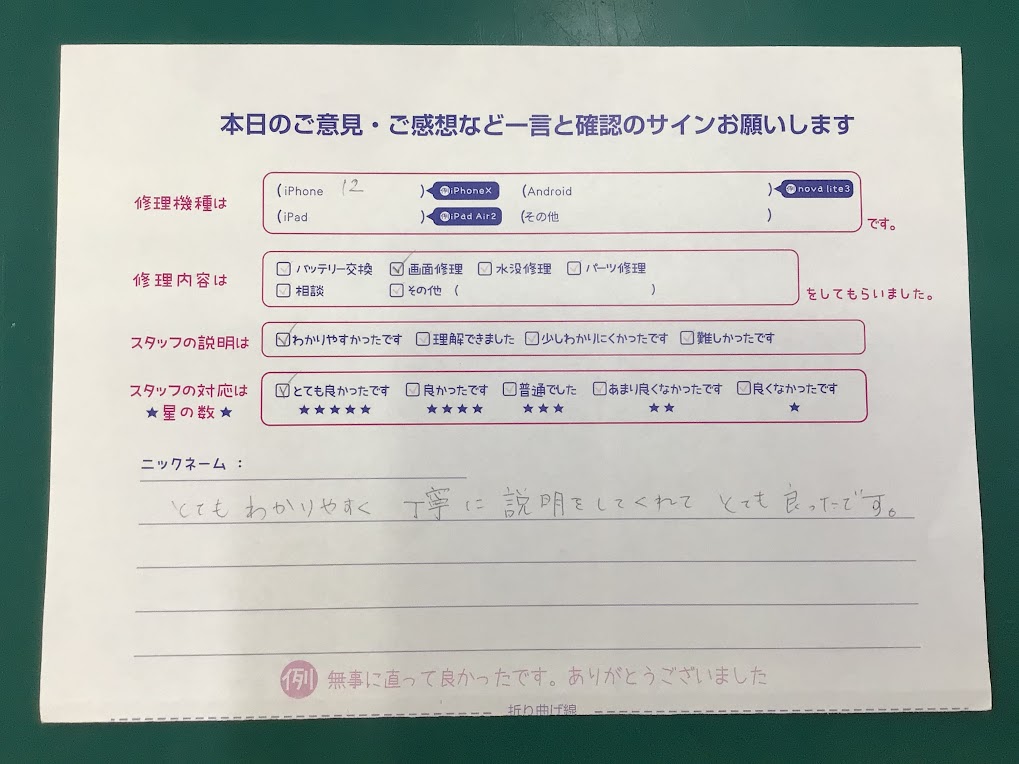 本日のご意見・ご感想など一言と確認のサインお願いします
修理機種は
(iPhone 12 ) 例iPhoneX (Android ) 例nova lite3
(iPad ) 例iPad Air2 (その他 )
です。
修理内容は
バッテリー交換 画面修理 水没修理 パーツ修理
相談 その他 ( )
をしてもらいました。
スタッフの説明は
わかりやすかったです 理解できました 少しわかりにくかったです 難しかったです
スタッフの対応は
★星の数★
とても良かったです 良かったです 普通でした あまり良くなかったです 良くなかったです
★★★★★ ★★★★ ★★★ ★★ ★
ニックネーム：
とてもわかりやすく 丁寧に説明をしてくれて とても良ったです。
例 無事に直って良かったです。ありがとうございました
折り曲げ線